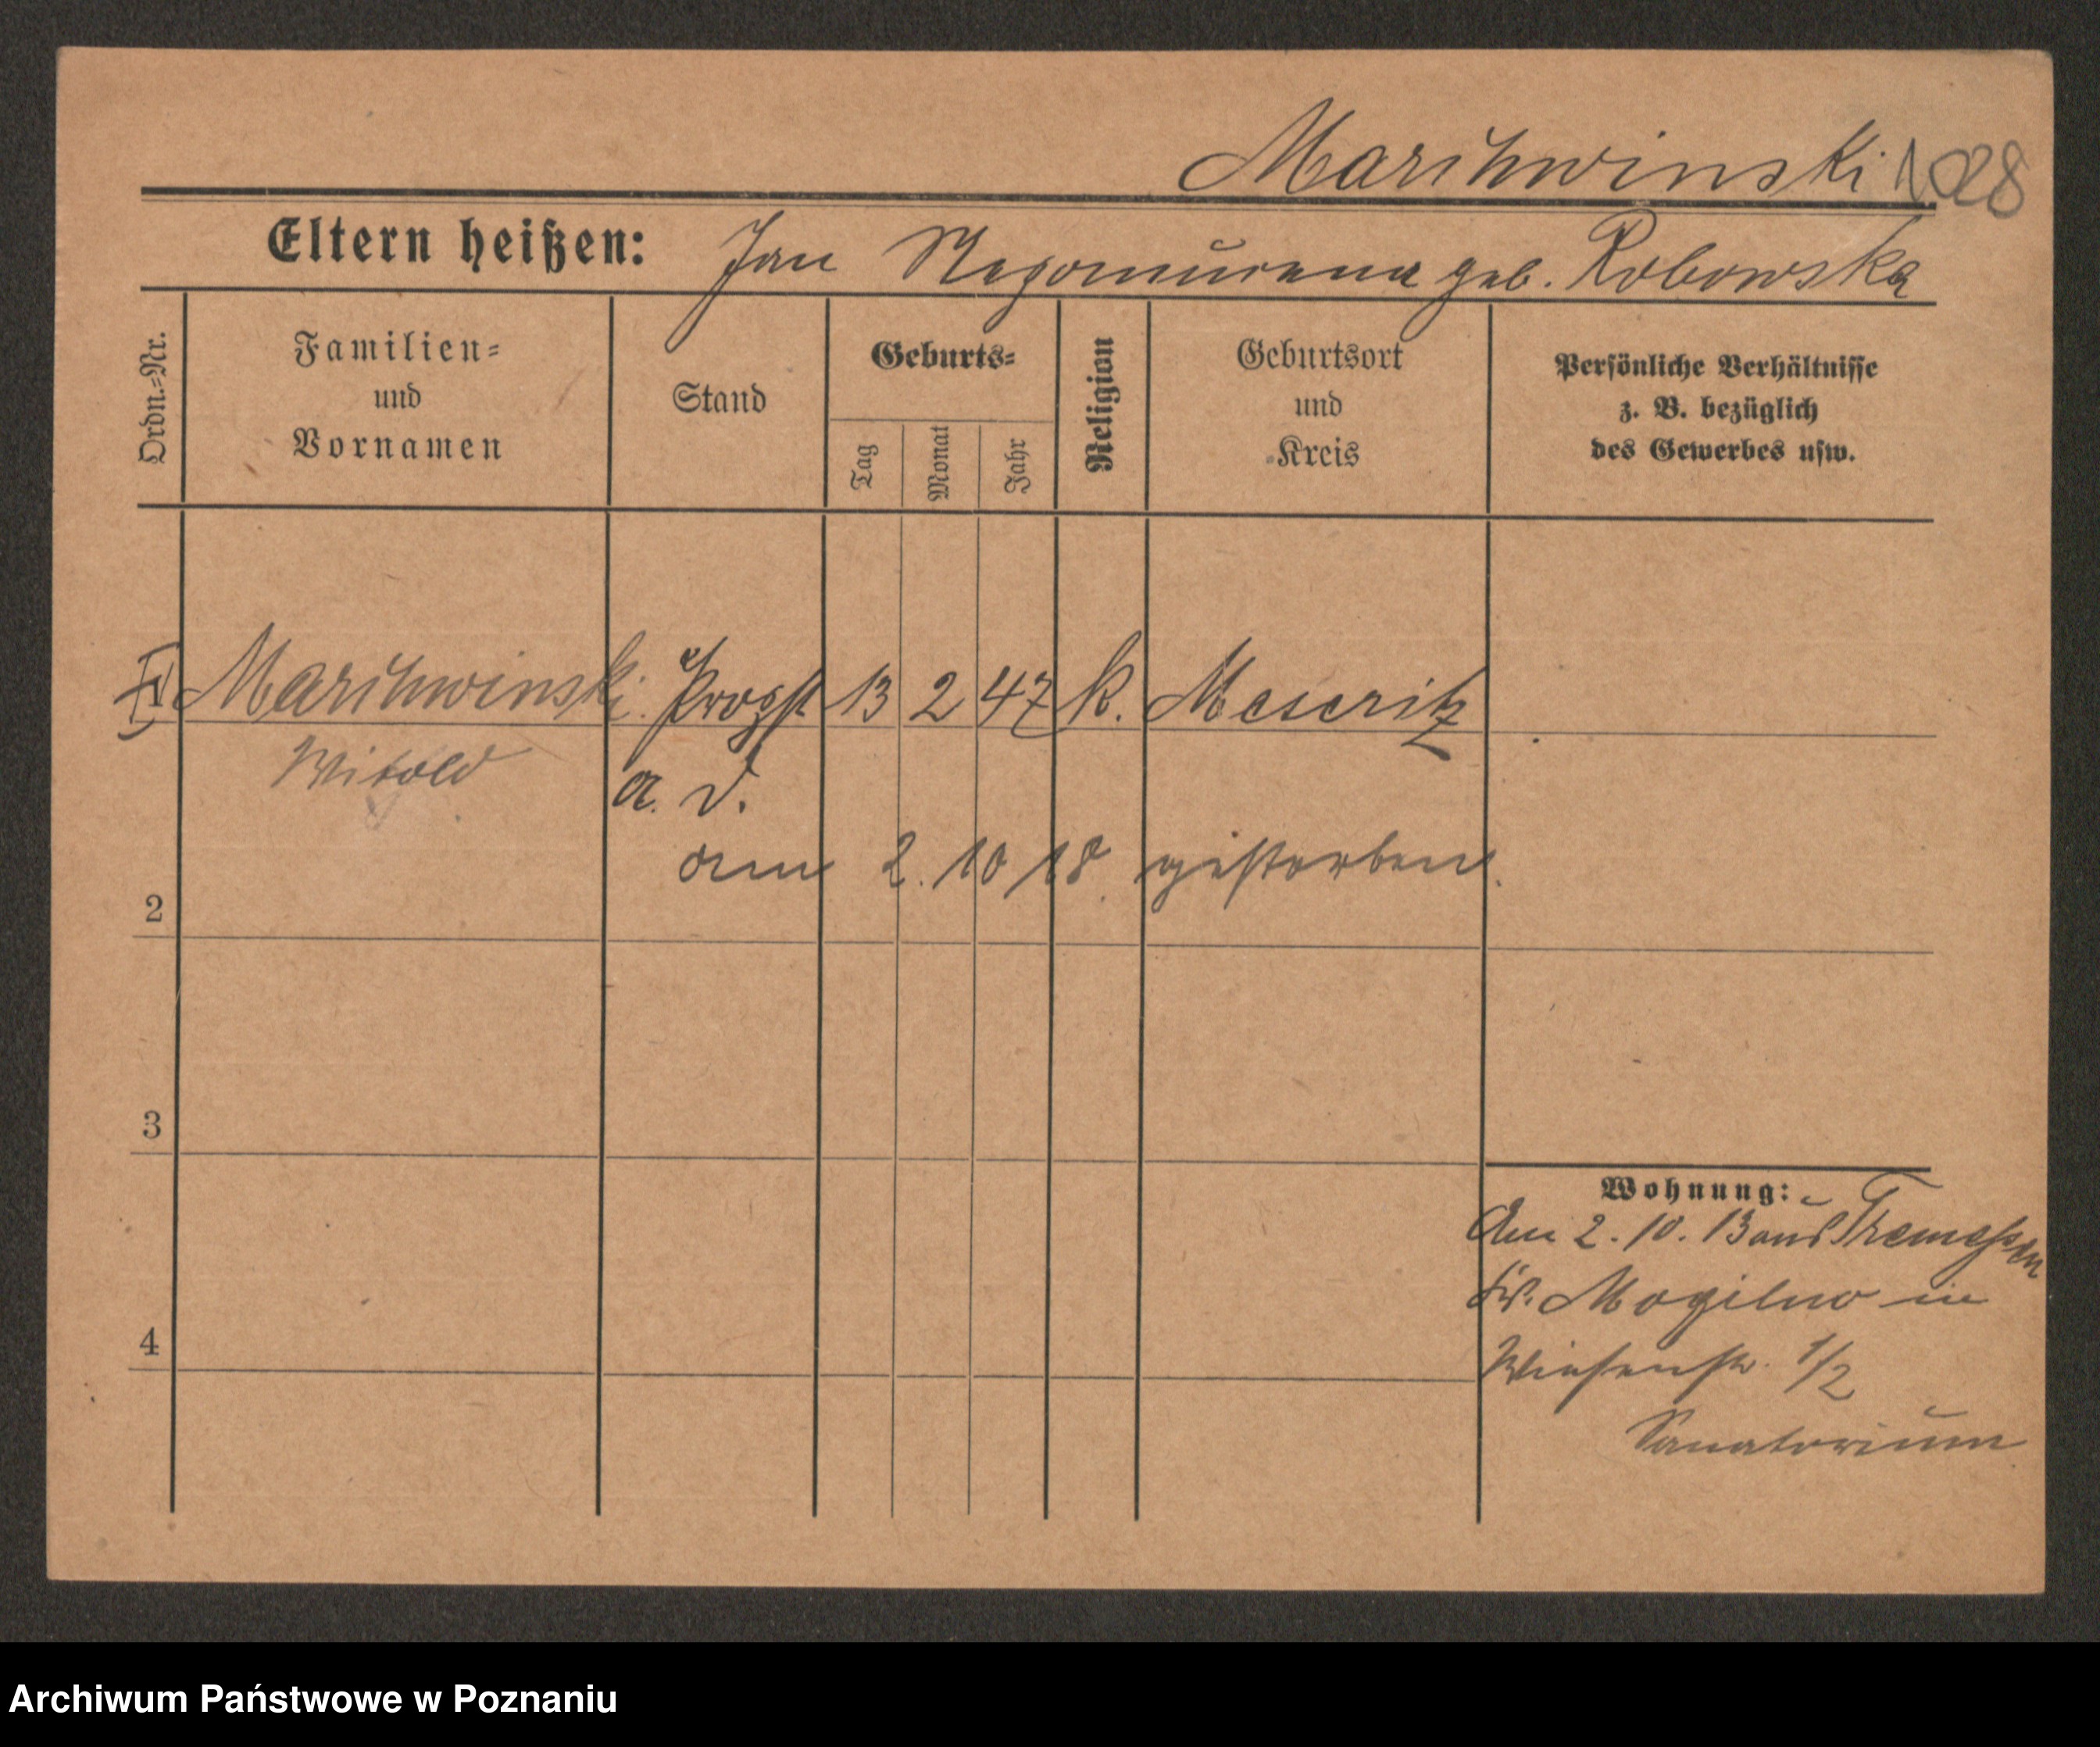 Marchwinski
Eltern heißen: Jan Nepomucena geb. Robowska
Ordn.-Nr.
Familien-
und
Vornamen
Stand
Geburts-
Tag
Monat
Jahr
Religion
Geburtsort
und
Kreis
Persönliche Verhältnisse
z. B. bezüglich
des Gewerbes usw.
Marchwinski Propst 13 2 47 k. Meseritz
Witold a. D.
am 2. 10 18. gestorben.
2
3
4
Wohnung:
Am 2. 10. 13 aus Tremessen
Kr. Mogilno in
Wiesenstr. 1/2
Sanatorium
Archiwum Państwowe w Poznaniu